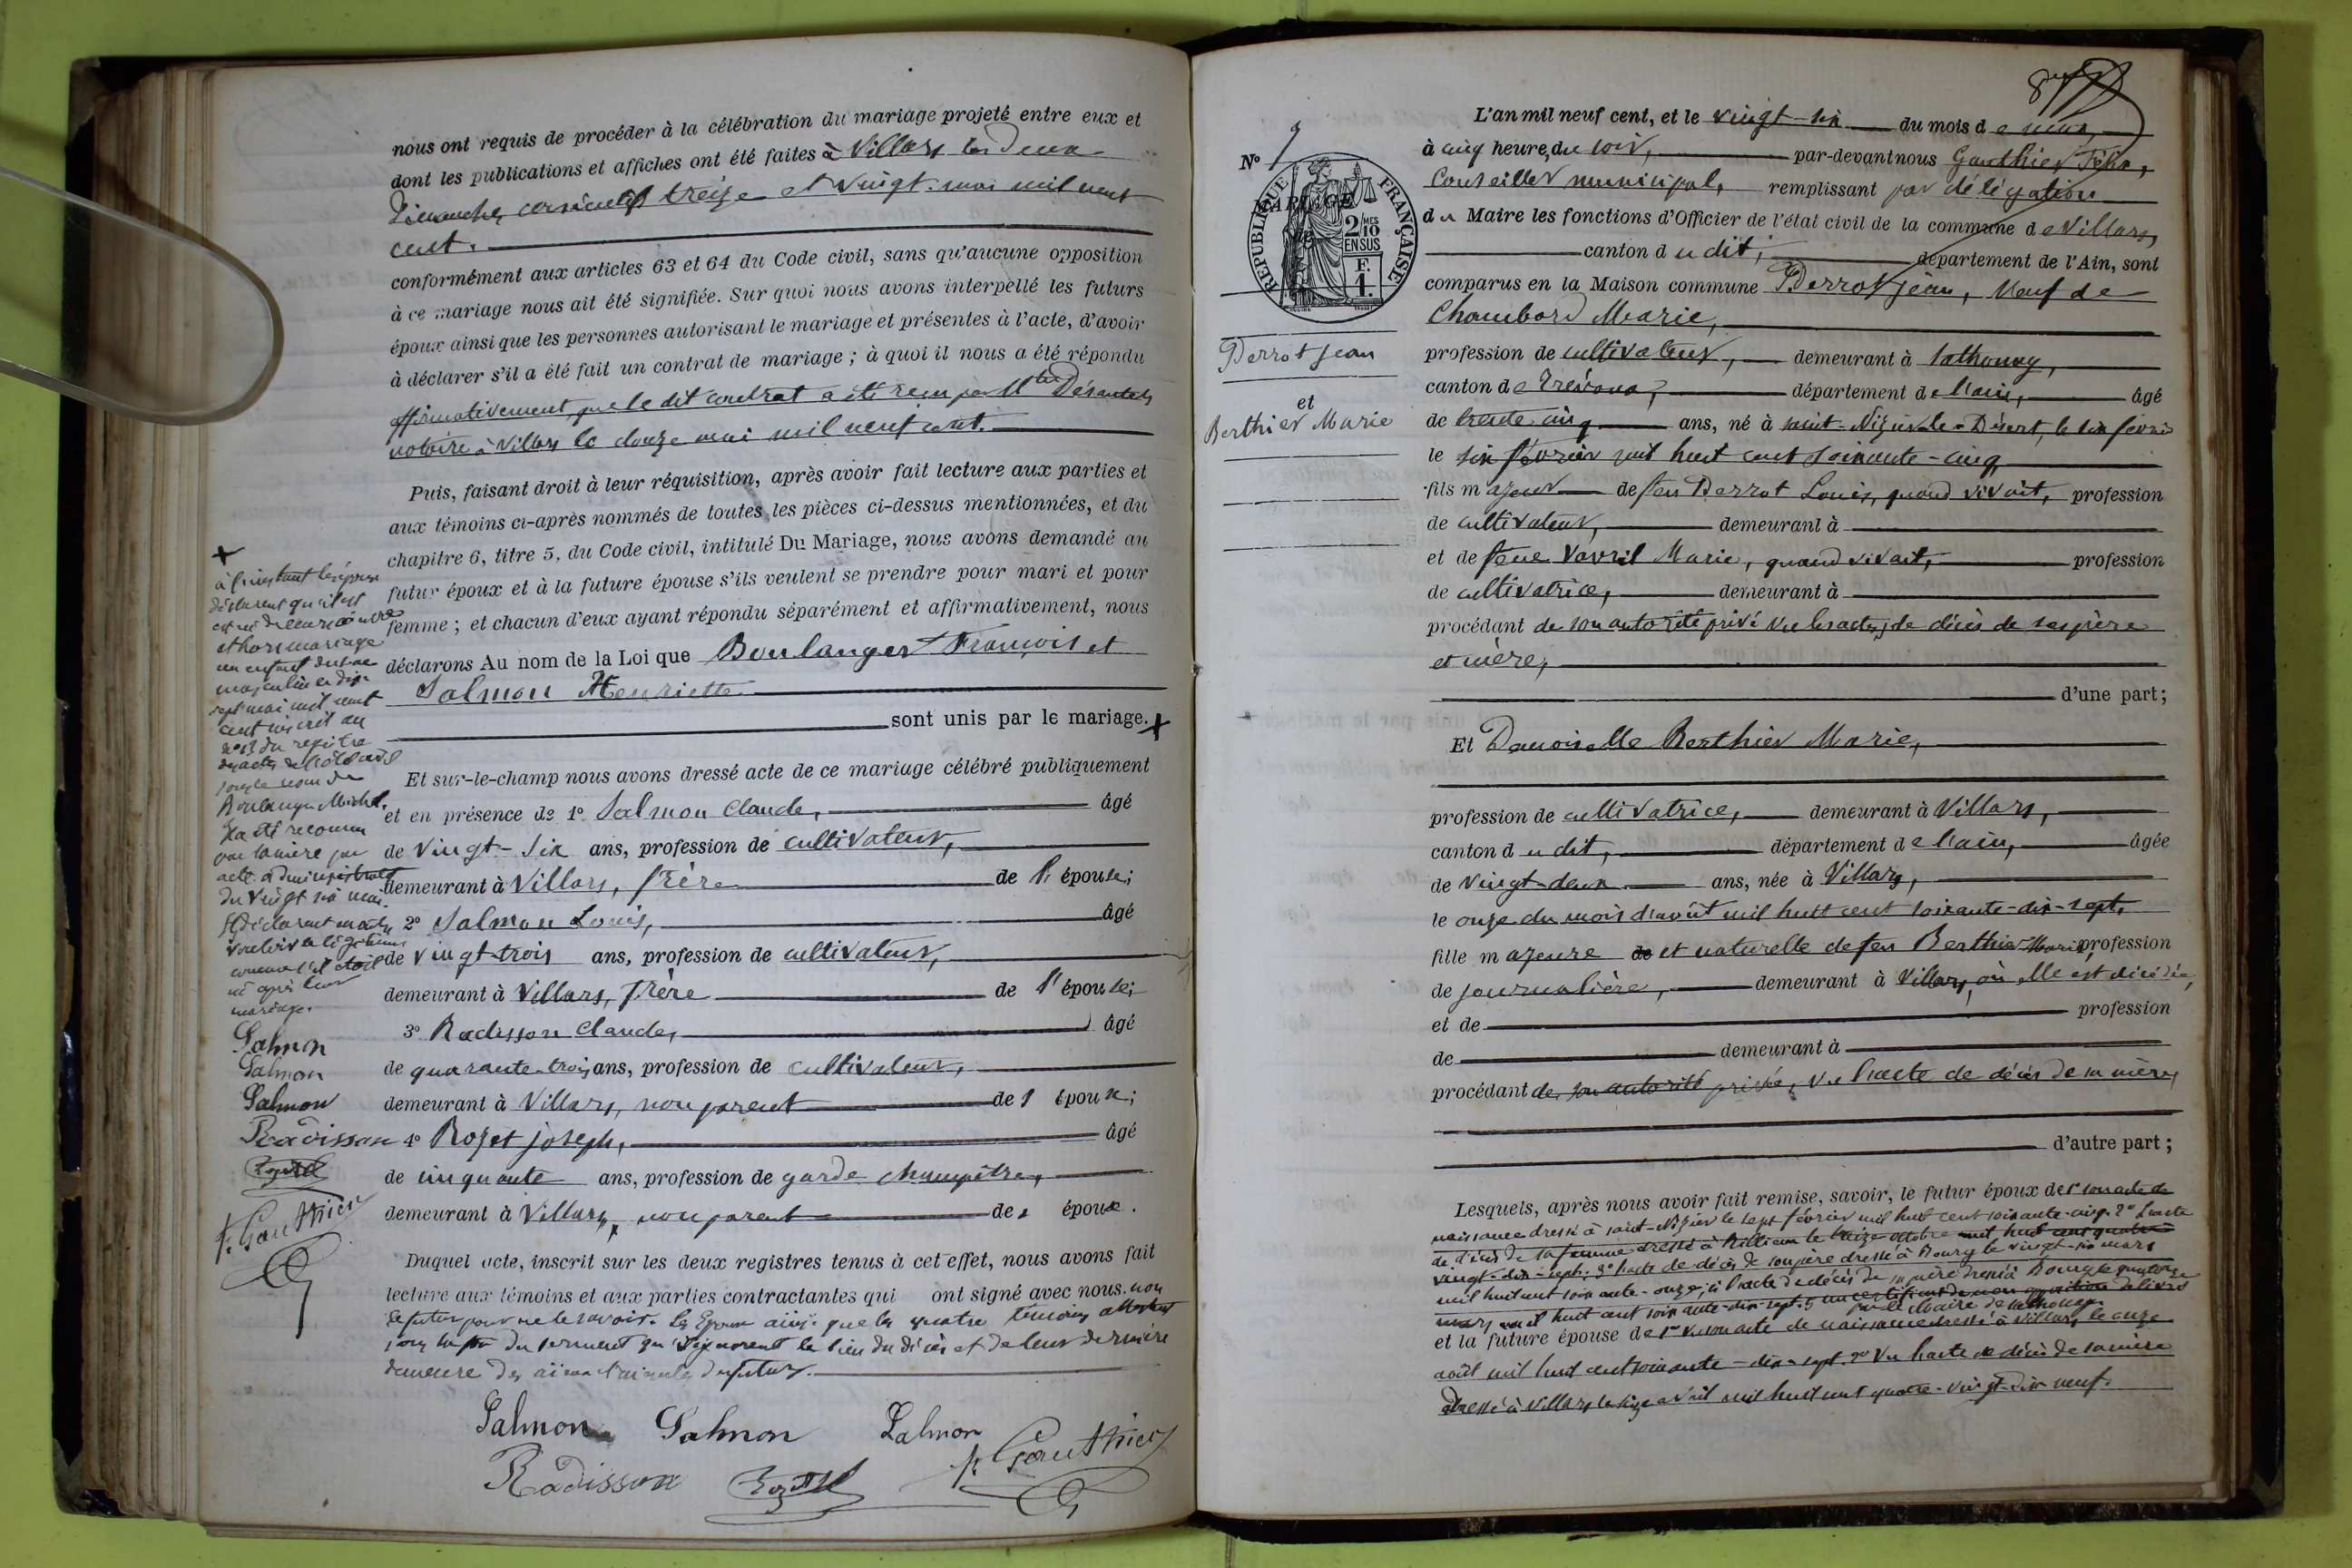 nous ont requis de procéder à la célébration du mariage projeté entre eux et
dont les publications et affiches ont été faites à Villars les deux
Dimanches consécutifs treize et vingt mai mil neuf
cent.
conformément aux articles 63 et 64 du Code civil, sans qu'aucune opposition
à ce mariage nous ait été signifiée. Sur quoi nous avons interpellé les futurs
époux ainsi que les personnes autorisant le mariage et présentes à l'acte, d'avoir
à déclarer s'il a été fait un contrat de mariage ; à quoi il nous a été répondu
affirmativement, que le dit contrat a été reçu par Mtre
notaire à Villars le douze mai mil neuf cent.
Puis, faisant droit à leur réquisition, après avoir fait lecture aux parties et
aux témoins ci-après nommés de toutes les pièces ci-dessus mentionnées, et du
chapitre 6, titre 5, du Code civil, intitulé Du Mariage, nous avons demandé au
futur époux et à la future épouse s'ils veulent se prendre pour mari et pour
femme ; et chacun d'eux ayant répondu séparément et affirmativement, nous
déclarons Au nom de la Loi que Boulanger François et
Salmon Henriette
sont unis par le mariage. x
Et sur-le-champ nous avons dressé acte de ce mariage célébré publiquement
et en présence de 1° Salmon Claude, âgé
de vingt-six ans, profession de cultivateur,
demeurant à Villars, frère de l'épouse;
2° Salmon Louis, âgé
de vingt-trois ans, profession de cultivateur,
demeurant à Villars, frère de l'épouse;
3° Radisson Claude, âgé
de quarante-trois ans, profession de cultivateur,
demeurant à Villars, non parent de s époux;
4° Rozet joseph, âgé
de cinquante ans, profession de garde champêtre,
demeurant à Villars, non parent des époux.
Duquel acte, inscrit sur les deux registres tenus à cet effet, nous avons fait
lecture aux témoins et aux parties contractantes qui ont signé avec nous. non
le futur pour ne le savoir. Les Epoux ainsi que les quatre témoins attestent
sous la foi du serment qu'ils ignorent le lieu du décès et de leur dernière
demeure des aïeux et aïeules du futur.
Salmon Salmon Salmon
Radisson Rozet f. Gauthier
x
à l'instant les époux
déclarent qu'il est
est né de leurs œuvres
et hors mariage
un enfant du sexe
masculin le dix
sept mai mil neuf
cent inscrit au
n° 13 du registre
des actes de l'état civil
sous le nom de
Boulanger Michel.
Il a été reconnu
par la mère par
acte administratif
du vingt six mai.
Ils déclarent
vouloir le légitimer
comme s'il était
né après leur
mariage.
Salmon
Salmon
Salmon
Radisson
Rozet
f. Gauthier
N° 9
RÉPUBLIQUE FRANÇAISE
2/10 MES
EN SUS
F.
1.
MARIAGE
de
Perrot Jean
et
Berthier Marie
L'an mil neuf cent, et le vingt-six du mois de mai,
à cinq heures du soir, par-devant nous Gauthier Félix,
Conseiller municipal, remplissant par délégation
du Maire les fonctions d'Officier de l'état civil de la commune de Villars,
canton du dit, département de l'Ain, sont
comparus en la Maison commune Perrot jean, Veuf de
Chambard Marie,
profession de cultivateur, demeurant à Rathoney,
canton de Trévoux, département de l'ain, âgé
de trente cinq ans, né à saint-Nizier-le-Désert, le six février
le six février mil huit cent soixante-cinq
fils majeur de feu Perrot Louis, quand vivait, profession
de cultivateur, demeurant à
et de feue Vavril Marie, quand vivait, profession
de cultivatrice, demeurant à
procédant de son autorité privé vu les actes de décès de ses père
et mère,
d'une part;
Et Demoiselle Berthier Marie,
profession de cultivatrice, demeurant à Villars,
canton du dit, département de l'ain, âgée
de vingt-deux ans, née à Villars,
le onze du mois d'août mil huit cent soixante-dix-sept,
fille majeure de et naturelle de feu Berthier Marie, profession
de journalière, demeurant à Villars, où elle est décédée,
et de profession
de demeurant à
procédant de son autorité privée, vu l'acte de décès de sa mère,
d'autre part;
Lesquels, après nous avoir fait remise, savoir, le futur époux de 1° son acte de
naissance dressé à saint-Nizier le sept février mil huit cent soixante-cinq. 2° L'acte
de décès de sa femme dressé à le treize octobre mil huit cent quatre
vingt-dix-sept; 3° l'acte de décès de son père dressé à Bourg le vingt-six mars
mil huit cent soixante-onze; l'acte de décès de sa mère dressé à Bourg le quatorze
mars mil huit cent soixante-dix-sept. 5° un certificat de non opposition délivré
par le Maire de
et la future épouse de 1° son acte de naissance dressé à Villars, le onze
août mil huit cent soixante-dix-sept. 2° Vu l'acte de décès de sa mère
dressé à Villars le avril mil huit cent quatre-vingt-dix neuf.